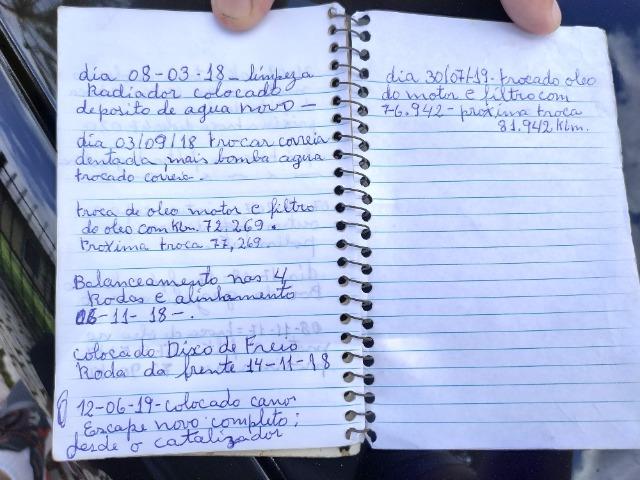 dia 08-03-18 - limpeza
Radiador colocado
deposito de agua novo -
dia 03/09/18 trocar correia
dentada, mais bomba agua
trocado correia.
troca de oleo motor e filtro
do oleo com Klm. 72.269.
Proxima troca 77,269
Balanceamento nas 4
Rodas e alinhamento
06-11-18-.
colocado Dixo de Freio
Roda da frente 14-11-18
12-06-19-colocado cano
Escape novo completo;
desde o catalizador
dia 30/07/19-trocado oleo
do motor e filtro com
76.942-próxima troca
81.942 Klm.